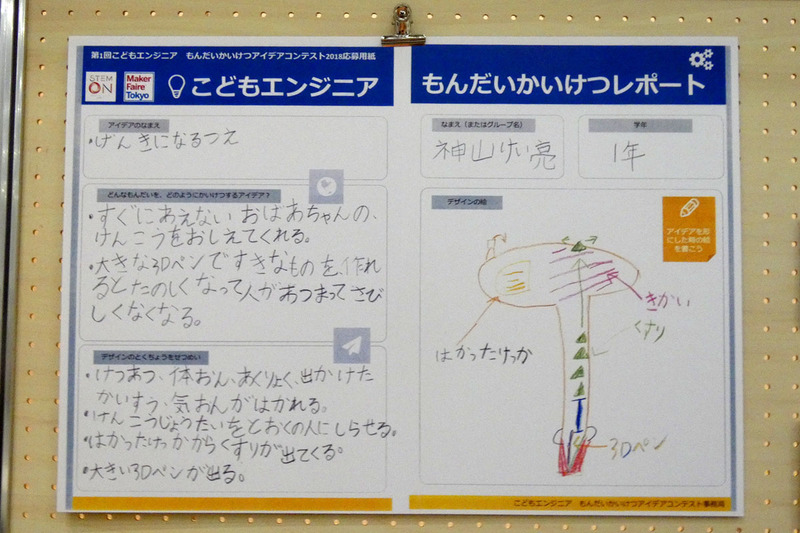 第1回こどもエンジニア　もんだいかいけつアイデアコンテスト2018応募用紙
STEM
ON
Maker
Faire
Tokyo
こどもエンジニア
もんだいかいけつレポート
アイデアのなまえ
・げんきになるつえ
なまえ（またはグループ名）
神山けい亮
学年
1年
どんなもんだいを、どのようにかいけつするアイデア？
・すぐにあえないおばあちゃんの、
けんこうをおしえてくれる。
・大きな3Dペンですきなものを、作れ
るとたのしくなって人があつまってさび
しくなくなる。
デザインのとくちょうをせつめい
・けつあつ、体おん、あくりょく、出かけた
かいすう、気おんがはかれる。
・けんこうじょうたいをとおくの人にしらせる。
・はかったけっかからくすりが出てくる。
・大きい3Dペンが出る。
デザインの絵
アイデアを形
にした時の絵
を書こう
きかい
くすり
はかったけっか
3Dペン
こどもエンジニア　もんだいかいけつアイデアコンテスト事務局